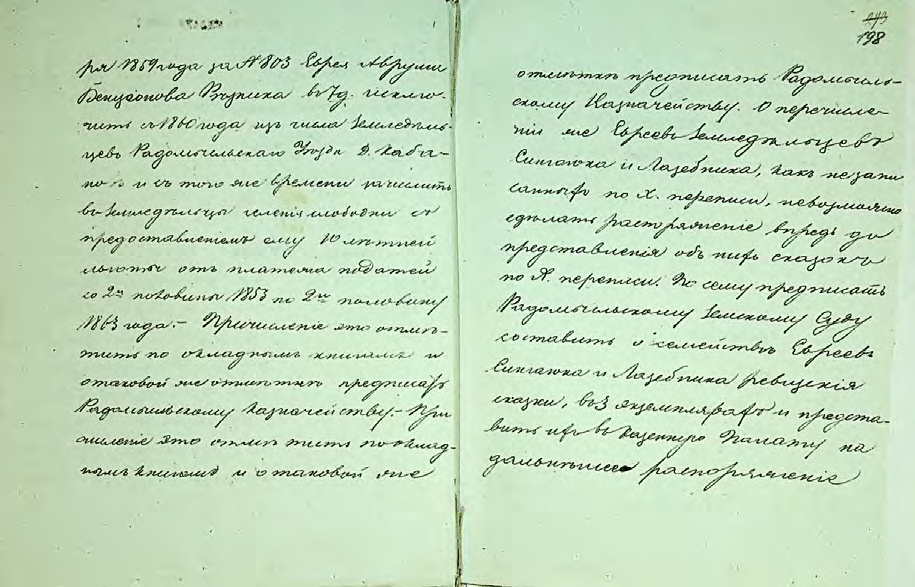 ря 1859 года за № 803 Еврея Аврума
Бенціонова Возника въ 7 д. исклю-
чить съ 1860 года изъ числа Земледѣль-
цевъ Радомысльскаго Уѣзда Д.
и съ того же времени зачислить
въ Земледѣльцы имѣнія слободки съ
предоставленіемъ ему 10 лѣтней
льготы отъ платежа податей
со 2й половины 1853 по 2ю половину
1863 года. – Причисленіе это отмѣ-
тить по окладнымъ книгамъ и
отаковой же отмѣткѣ предписать
Радомысльскому Казначейству. – При
численіе это отмѣтить по оклад-
нымъ книгамъ и отаковой же
198
отмѣткѣ предписать Радомысль-
скому Казначейству. О перечисле-
ніи же Евреевъ Земледѣльцевъ
и Лазебника, какъ незапи
санныхъ по X. переписи, невозможно
сдѣлать распоряженіе впредь до
представленія объ нихъ сказокъ
по X. переписи. По сему предписать
Радомысльскому Земскому Суду
составить о семействѣ Евреевъ
и Лазебника ревизскія
сказки, въ 3 экземплярахъ и предста-
вить ихъ въ Казенную Палату на
дальнѣйшее распоряженіе